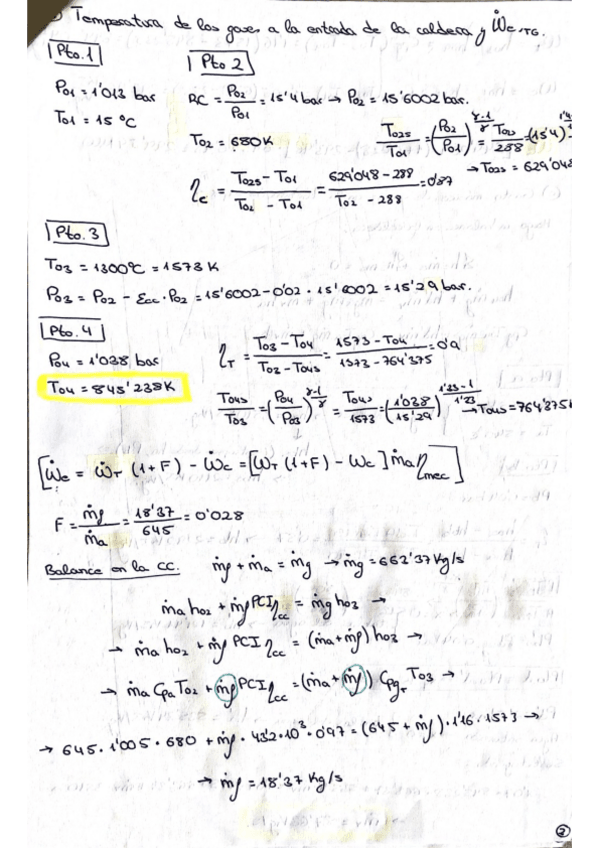 Temperatura de los gases a la entrada de la caldera y Ẇe,TG.
Pto.1
Pto 2
P01 = 1'013 bar
T01 = 15 ºC
RC = P02/P01 = 15'4 bar → P02 = 15'6002 bar.
T02 = 680K
T02s/T01 = (P02/P01)^(γ-1/γ) = T02s/288 = (15'4)
→ T02s = 629'048
ηc = (T02s - T01)/(T02 - T01) = (629'048 - 288)/(T02 - 288) = 0'87
Pto.3
T03 = 1300ºC = 1573 K
P03 = P02 - Ecc · P02 = 15'6002 - 0'02 · 15'6002 = 15'29 bar.
Pto.4
P04 = 1'038 bar
T04 = 845'238K
ηT = (T03 - T04)/(T03 - T04s) = (1573 - T04)/(1573 - 764'375) = 0'9
T04s/T03 = (P04/P03)^(γ-1/γ) = T04s/1573 = (1'038/15'29)^(1'23-1/1'23) → T04s = 764'375K
[Ẇe = ẆT (1+F) - Ẇc = [WT (1+F) - Wc] ṁa ηmec]
F = ṁf/ṁa = 18'37/645 = 0'028
Balance en la CC.
ṁf + ṁa = ṁg → ṁg = 663'37 Kg/s
ṁa h02 + ṁf PCI ηcc = ṁg h03 →
→ ṁa h02 + ṁf PCI ηcc = (ṁa + ṁf) h03 →
→ ṁa Cpa T02 + ṁf PCI ηcc = (ṁa + ṁf) Cpg T03 →
→ 645 · 1'005 · 680 + ṁf · 43'2 · 10³ · 0'97 = (645 + ṁf) · 1'16 · 1573 →
→ ṁf = 18'37 Kg/s
2